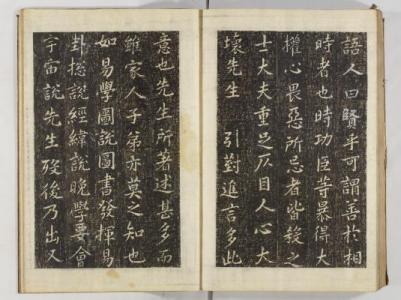 語人曰賢乎可謂善於相
時者也時功臣等暴得大
權心畏惡所忌者皆殺之
士大夫重足仄目人心大
壞先生　引對進言多此
意也先生所著述甚多而
雖家人子弟亦莫之知也
如易學圖說圖書發揮易
卦捴說經緯說晚學要會
宇宙說先生歿後乃出又